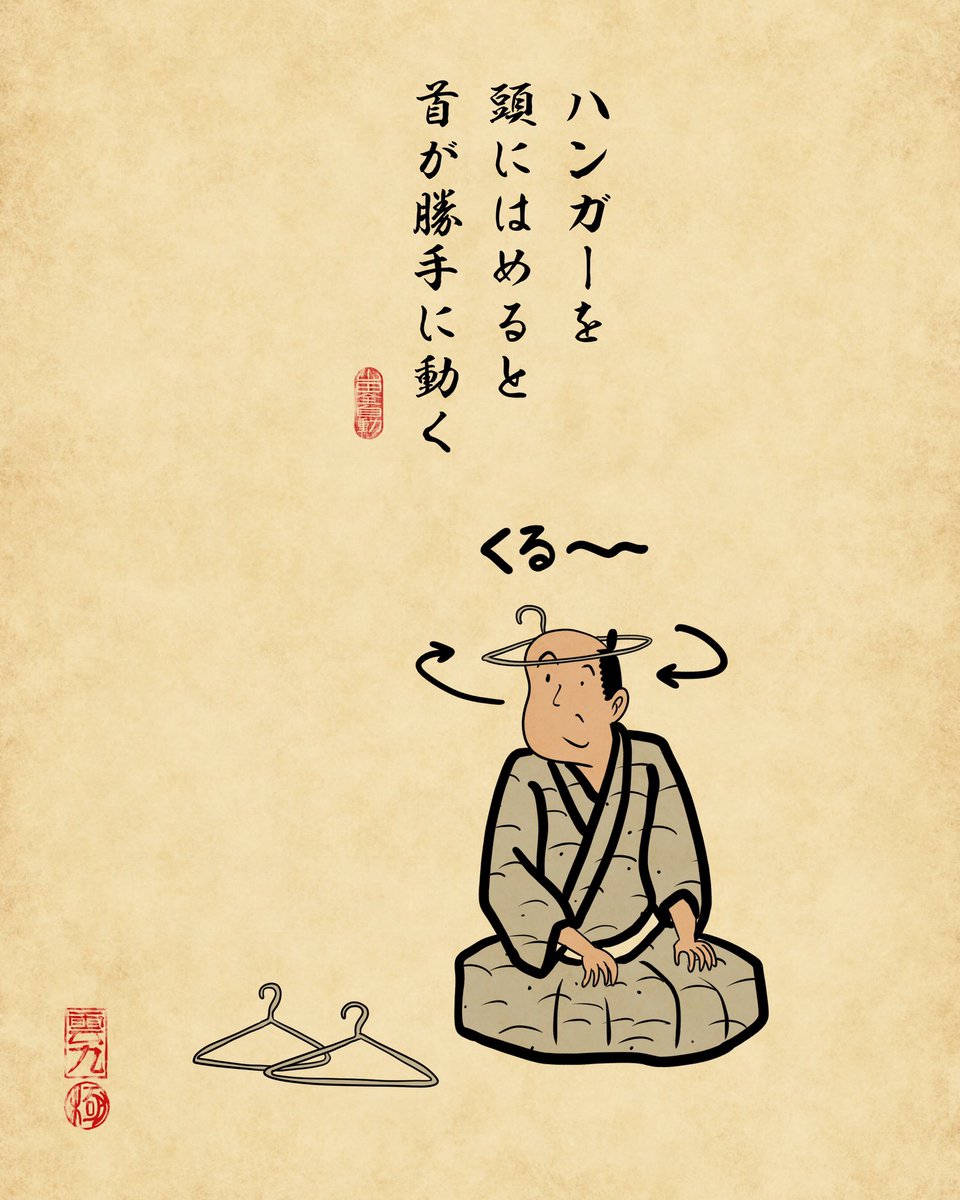 ハンガーを
頭にはめると
首が勝手に動く
くる〜